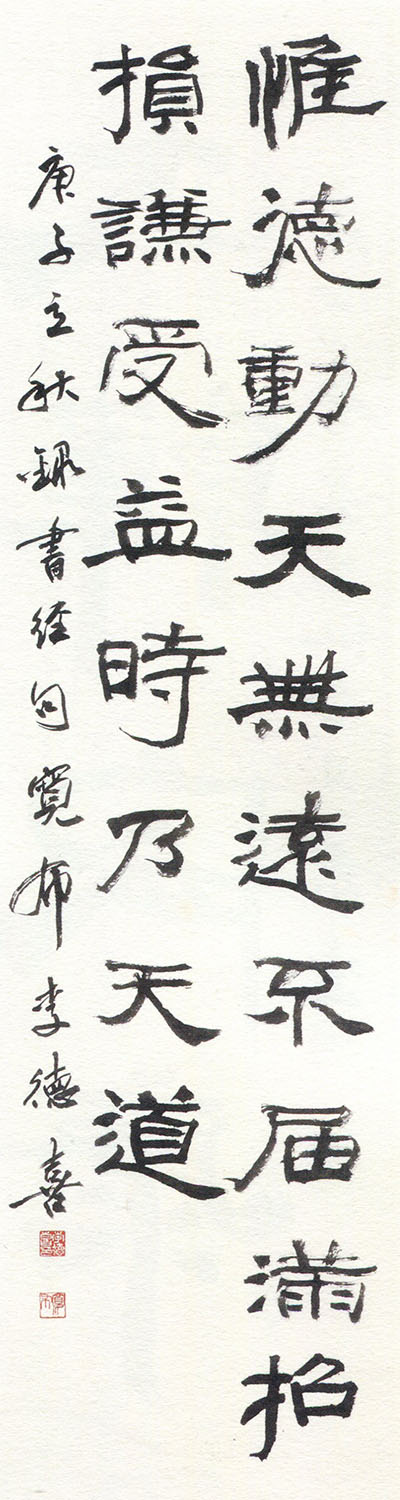 惟德動天無遠不届滿招
損謙受益時乃天道
庚子立秋錄書經句寬布李德喜